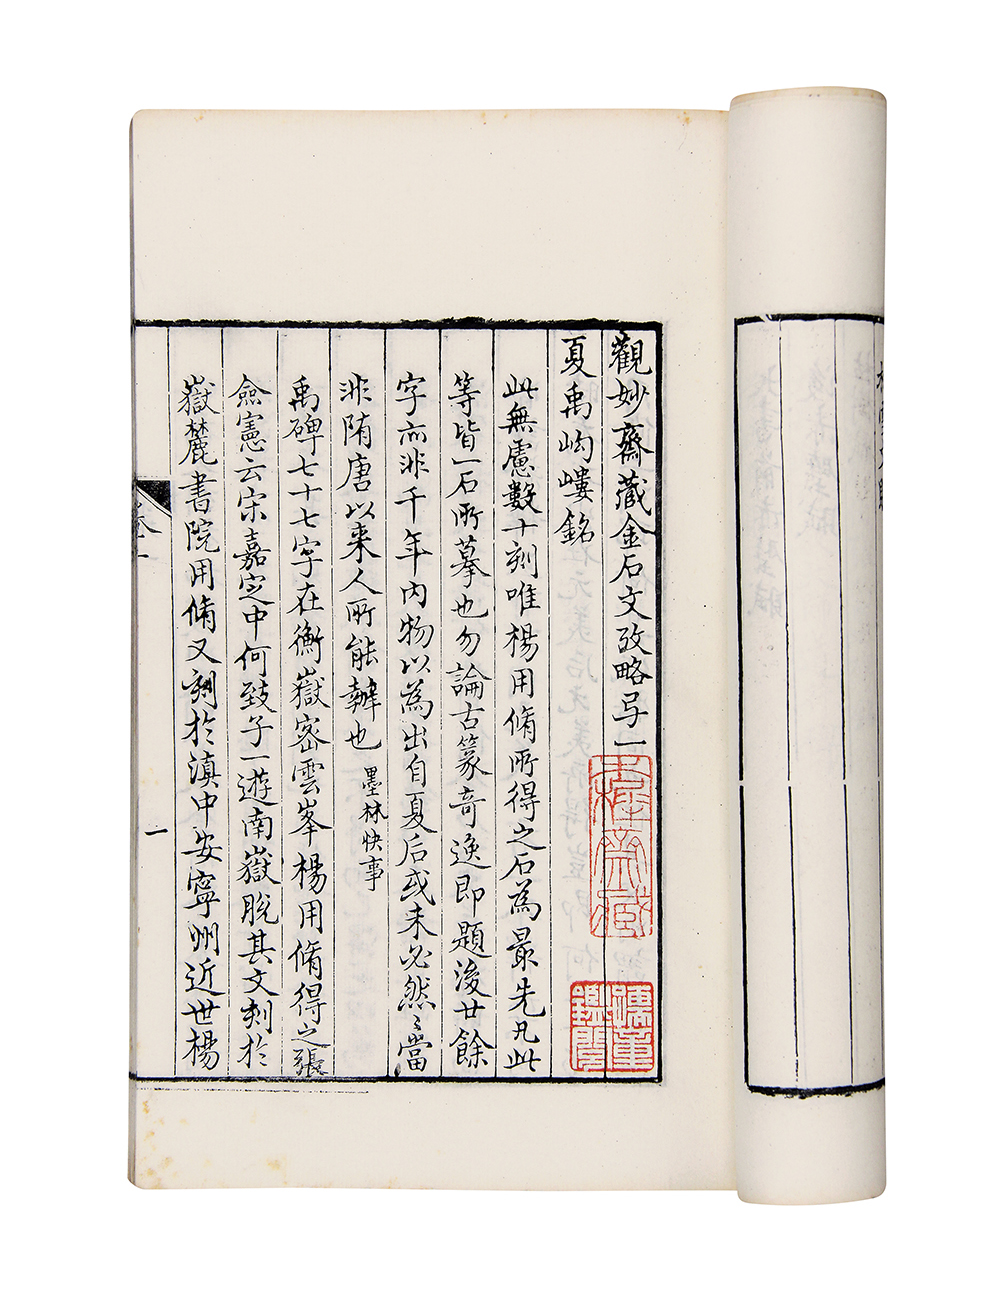 觀妙齋藏金石文攷略弓一
夏禹岣嶁銘
此無慮數十刻唯楊用脩所得之石為最先凡此
等皆一石所摹也勿論古篆奇逸即題後廿餘
字亦非千年內物以為出自夏后或未必然〻當
非隋唐以来人所能辦也 墨林快事
禹碑七十七字在衡嶽密雲峯楊用脩得之張
僉憲云宋嘉定中何致子一遊南嶽脫其文刻於
嶽麓書院用脩又刻於滇中安寧州近世楊
一